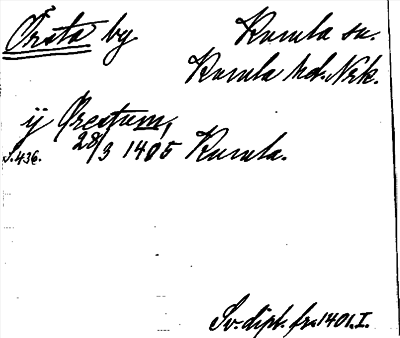 Örsta by Kumla sn.
Kumla hd. Nrk.
ij Ørestum,
28/3 1405 Kumla.
S. 436.
Sv. dipl. fr. 1401. I.